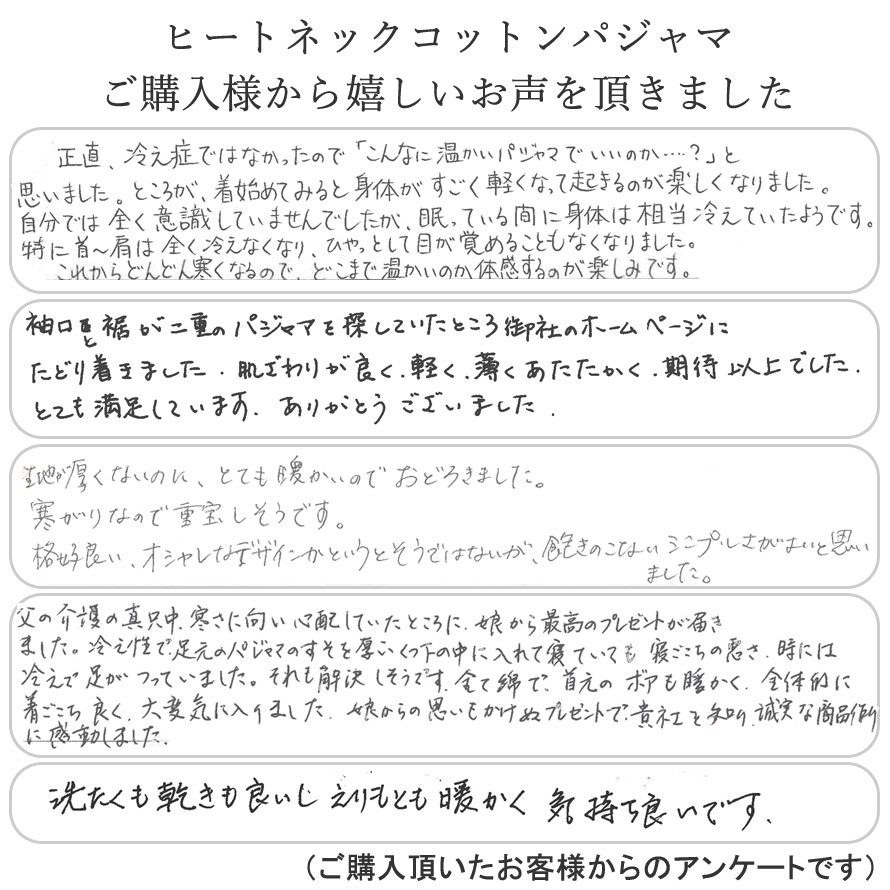 ヒートネックコットンパジャマ
ご購入様から嬉しいお声を頂きました
正直、冷え症ではなかったので「こんなに温かいパジャマでいいのか‥‥?」と
思いました。ところが、着始めてみると身体がすごく軽くなって起きるのが楽しくなりました。
自分では全く意識していませんでしたが、眠っている間に身体は相当冷えていたようです。
特に首〜肩は全く冷えなくなり、ひやっとして目が覚めることもなくなりました。
これからどんどん寒くなるので、どこまで温かいのか体感するのが楽しみです。
袖口と裾が二重のパジャマを探していたところ御社のホームページに
たどり着きました. 肌ざわりが良く、軽く、薄くあたたかく、期待以上でした.
とても満足しています. ありがとうございました.
生地が厚くないのに、とても暖かいのでおどろきました。
寒がりなので重宝しそうです。
格好良い、オシャレなデザインかというとそうではないが、飽きのこないシンプルさがよいと思い
ました。
父の介護の真只中、寒さに向い心配していたところに、娘から最高のプレゼントが届き
ました。冷え性で、足元のパジャマのすそを厚いくつ下の中に入れて寝ていても寝ごこちの悪さ、時には
冷えで足がつっていました。それも解決しそうです、全て綿で、首元のボアも暖かく、全体的に
着ごこち良く、大変気に入りました、娘からの思いもかけぬプレゼントで、貴社を知り、誠実な商品作り
に感動しました.
洗たくも乾きも良いし えりもとも暖かく 気持ち良いです.
(ご購入頂いたお客様からのアンケートです)